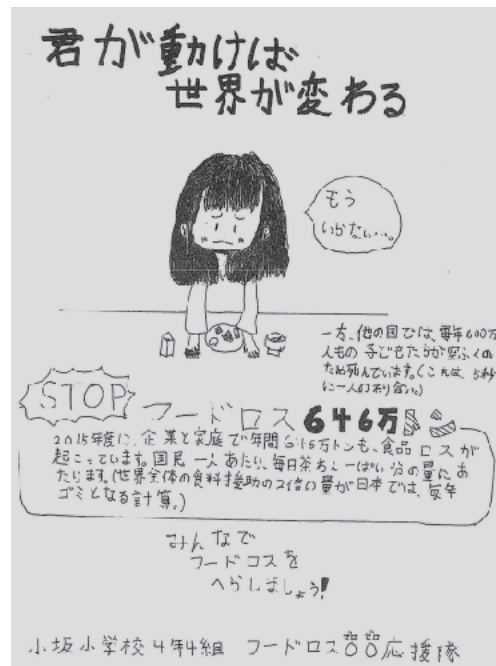 君が動けば
世界が変わる
もう
いらない…。
一方、他の国では、毎年600万
人もの子どもたちが空ふくの
ため死んでいます。(これは、5秒
に一人のわり合い。)
STOP フードロス 646万トン
2015年度に、企業と家庭で年間646万トンも、食品ロスが
起こっています。国民一人あたり、毎日茶わん一ぱい分の量にあ
たります。(世界全体の食料援助の2倍い量が日本では、毎年
ゴミとなる計算。)
みんなで
フードロスを
へらしましょう!
小坂小学校4年4組 フードロス 応援隊